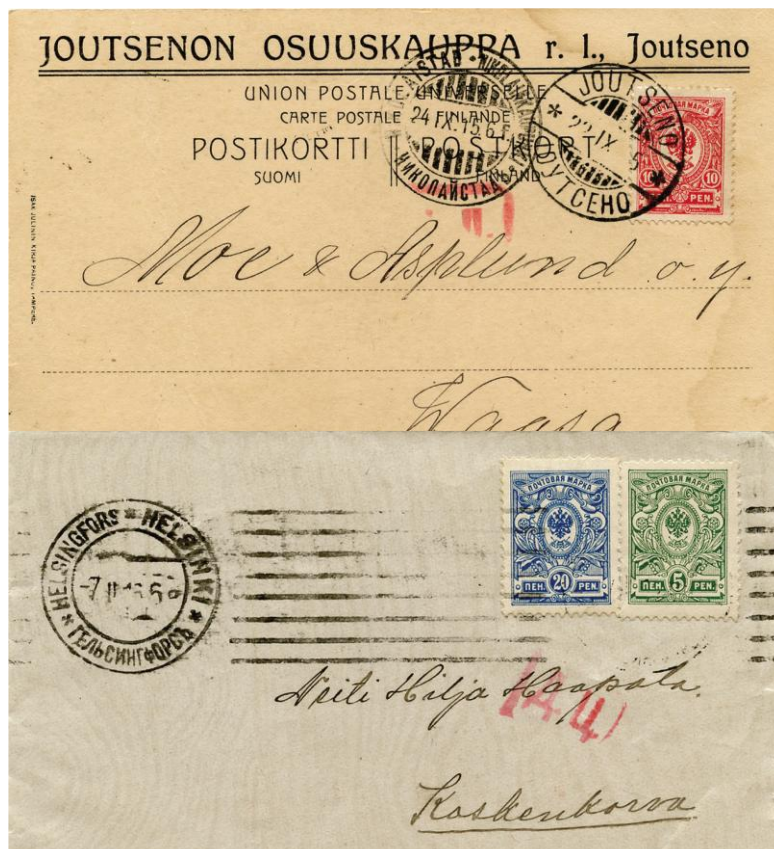 JOUTSENON OSUUSKAUPPA r. l., Joutseno
UNION POSTALE UNIVERSELLE
CARTE POSTALE FINLANDE
POSTIKORTTI POSTKORT
SUOMI FINLAND
NIKOLAISTAD
24.IX.15.6
НИКОЛАЙСТАД
JOUTSENO
IX
ЮУТСЕНО
ПОЧТОВАЯ МАРКА
10 PEN.
Moe & Asplund o.y.
Waasa
HELSINGFORS * HELSINKI
ГЕЛЬСИНГФОРСЪ
ПОЧТОВАЯ МАРКА
ПЕН. 20 PEN.
ПОЧТОВАЯ МАРКА
ПЕН. 5 PEN.
Neiti Hilja Haapala.
Koskenkorva